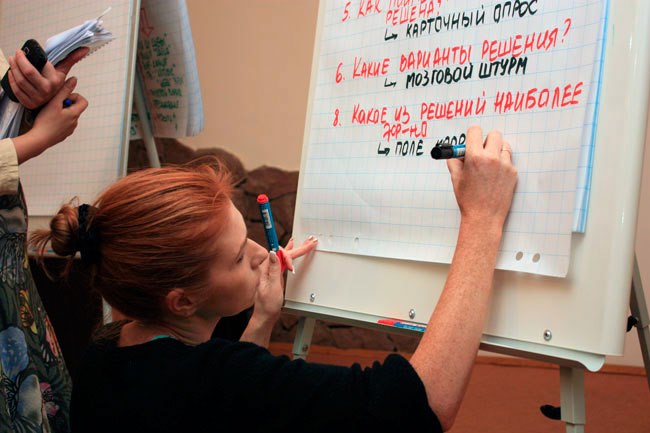 5. КАК
РЕШЕНА?
↳ КАРТОЧНЫЙ ОПРОС
6. КАКИЕ ВАРИАНТЫ РЕШЕНИЯ?
↳ МОЗГОВОЙ ШТУРМ
8. КАКОЕ ИЗ РЕШЕНИЙ НАИБОЛЕЕ
ЭФФ-НО
↳ ПОЛЕ